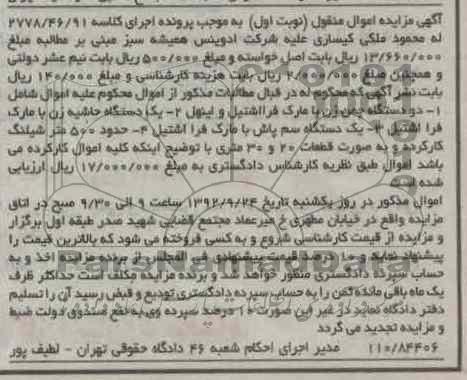 آگهی مزایده اموال منقول (نوبت اول) به موجب پرونده اجرای کلاسه ۲۷۷۸/۴۶/۹۱
له محمود ملکی کیساری علیه شرکت ادوینس همیشه سبز مبنی بر مطالبه مبلغ
۱۳/۶۶۰/۰۰۰ ریال بابت اصل خواسته و مبلغ ۵۰۰/۰۰۰ ریال بابت نیم عشر دولتی
و همچنین مبلغ ریال بابت هزینه کارشناسی و مبلغ ۱۴۰/۰۰۰ ریال
بابت نشر آگهی که محکوم له در قبال مطالبات مذکور از اموال محکوم علیه اموال شامل
۱- دو دستگاه چمن زن با مارک فرااشتیل و اینهل ۲- یک دستگاه حاشیه زن با مارک
فرا اشتیل ۳- یک دستگاه سم پاش با مارک فرا اشتیل ۴- حدود ۵۶۰ متر شیلنگ
کارکرده و به صورت قطعات ۲۰ و ۳۰ متری با توضیح اینکه کلیه اموال کارکرده می
باشد اموال طبق نظریه کارشناس دادگستری به مبلغ ۱۷/۰۰۰/۰۰۰ ریال ارزیابی
شده است
اموال مذکور در روز یکشنبه تاریخ ۱۳۹۲/۹/۲۴ ساعت ۹ الی ۹/۳۰ صبح در اتاق
مزایده واقع در خیابان مطهری خ میرعماد مجتمع قضایی شهید صدر طبقه اول برگزار
و مزایده از قیمت کارشناسی شروع و به کسی فروخته می شود که بالاترین قیمت را
پیشنهاد نماید و ۱۰ درصد قیمت پیشنهادی فی المجلس از برنده مزایده اخذ و به
حساب سپرده دادگستری منظور خواهد شد و برنده مزایده مکلف است حداکثر ظرف
یک ماه باقی مانده ثمن را به حساب سپرده دادگستری تودیع و قبض رسید آن را تسلیم
دفتر دادگاه نماید در غیر این صورت ۱۰ درصد سپرده وی به نفع صندوق دولت ضبط
و مزایده تجدید می گردد
۱۱۰/۸۴۴۰۶ مدیر اجرای احکام شعبه ۴۶ دادگاه حقوقی تهران - لطیف پور